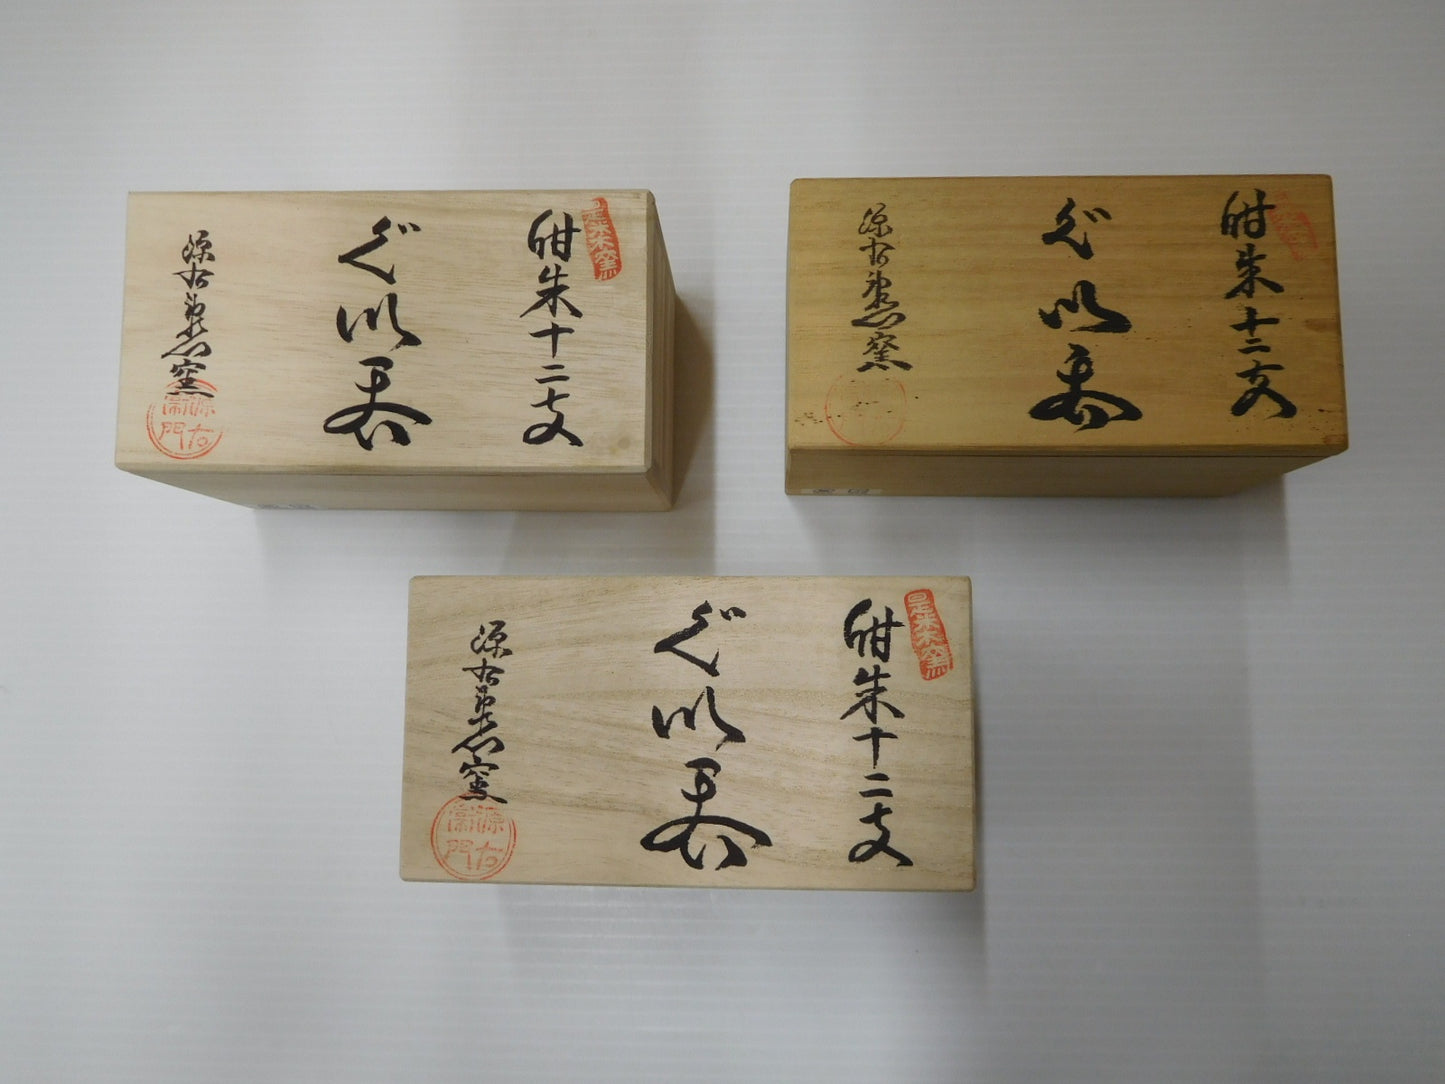 紺朱十二支
ぐい呑
源右衛門窯
源右衛門
紺朱十二支
ぐい呑
源右衛門窯
紺朱十二支
ぐい呑
源右衛門窯
源右衛門